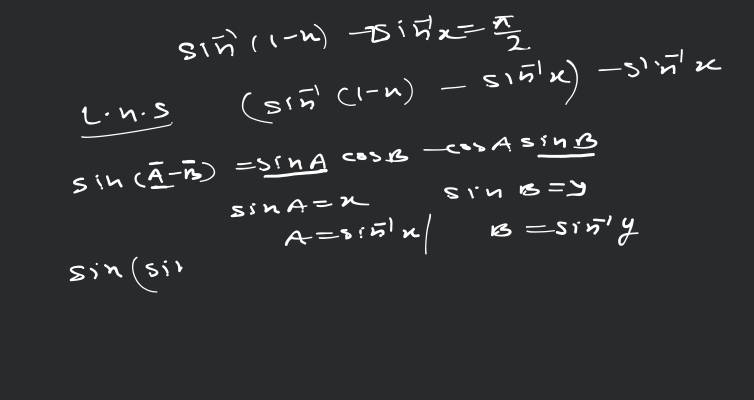 sin⁻¹(1-x) - 2sin⁻¹x = π/2
L.H.S (sin⁻¹(1-x) - sin⁻¹x) - sin⁻¹x
sin(A-B) = sinA cosB - cosA sinB
sinA = x sin B = y
A = sin⁻¹x | B = sin⁻¹y
sin(sin